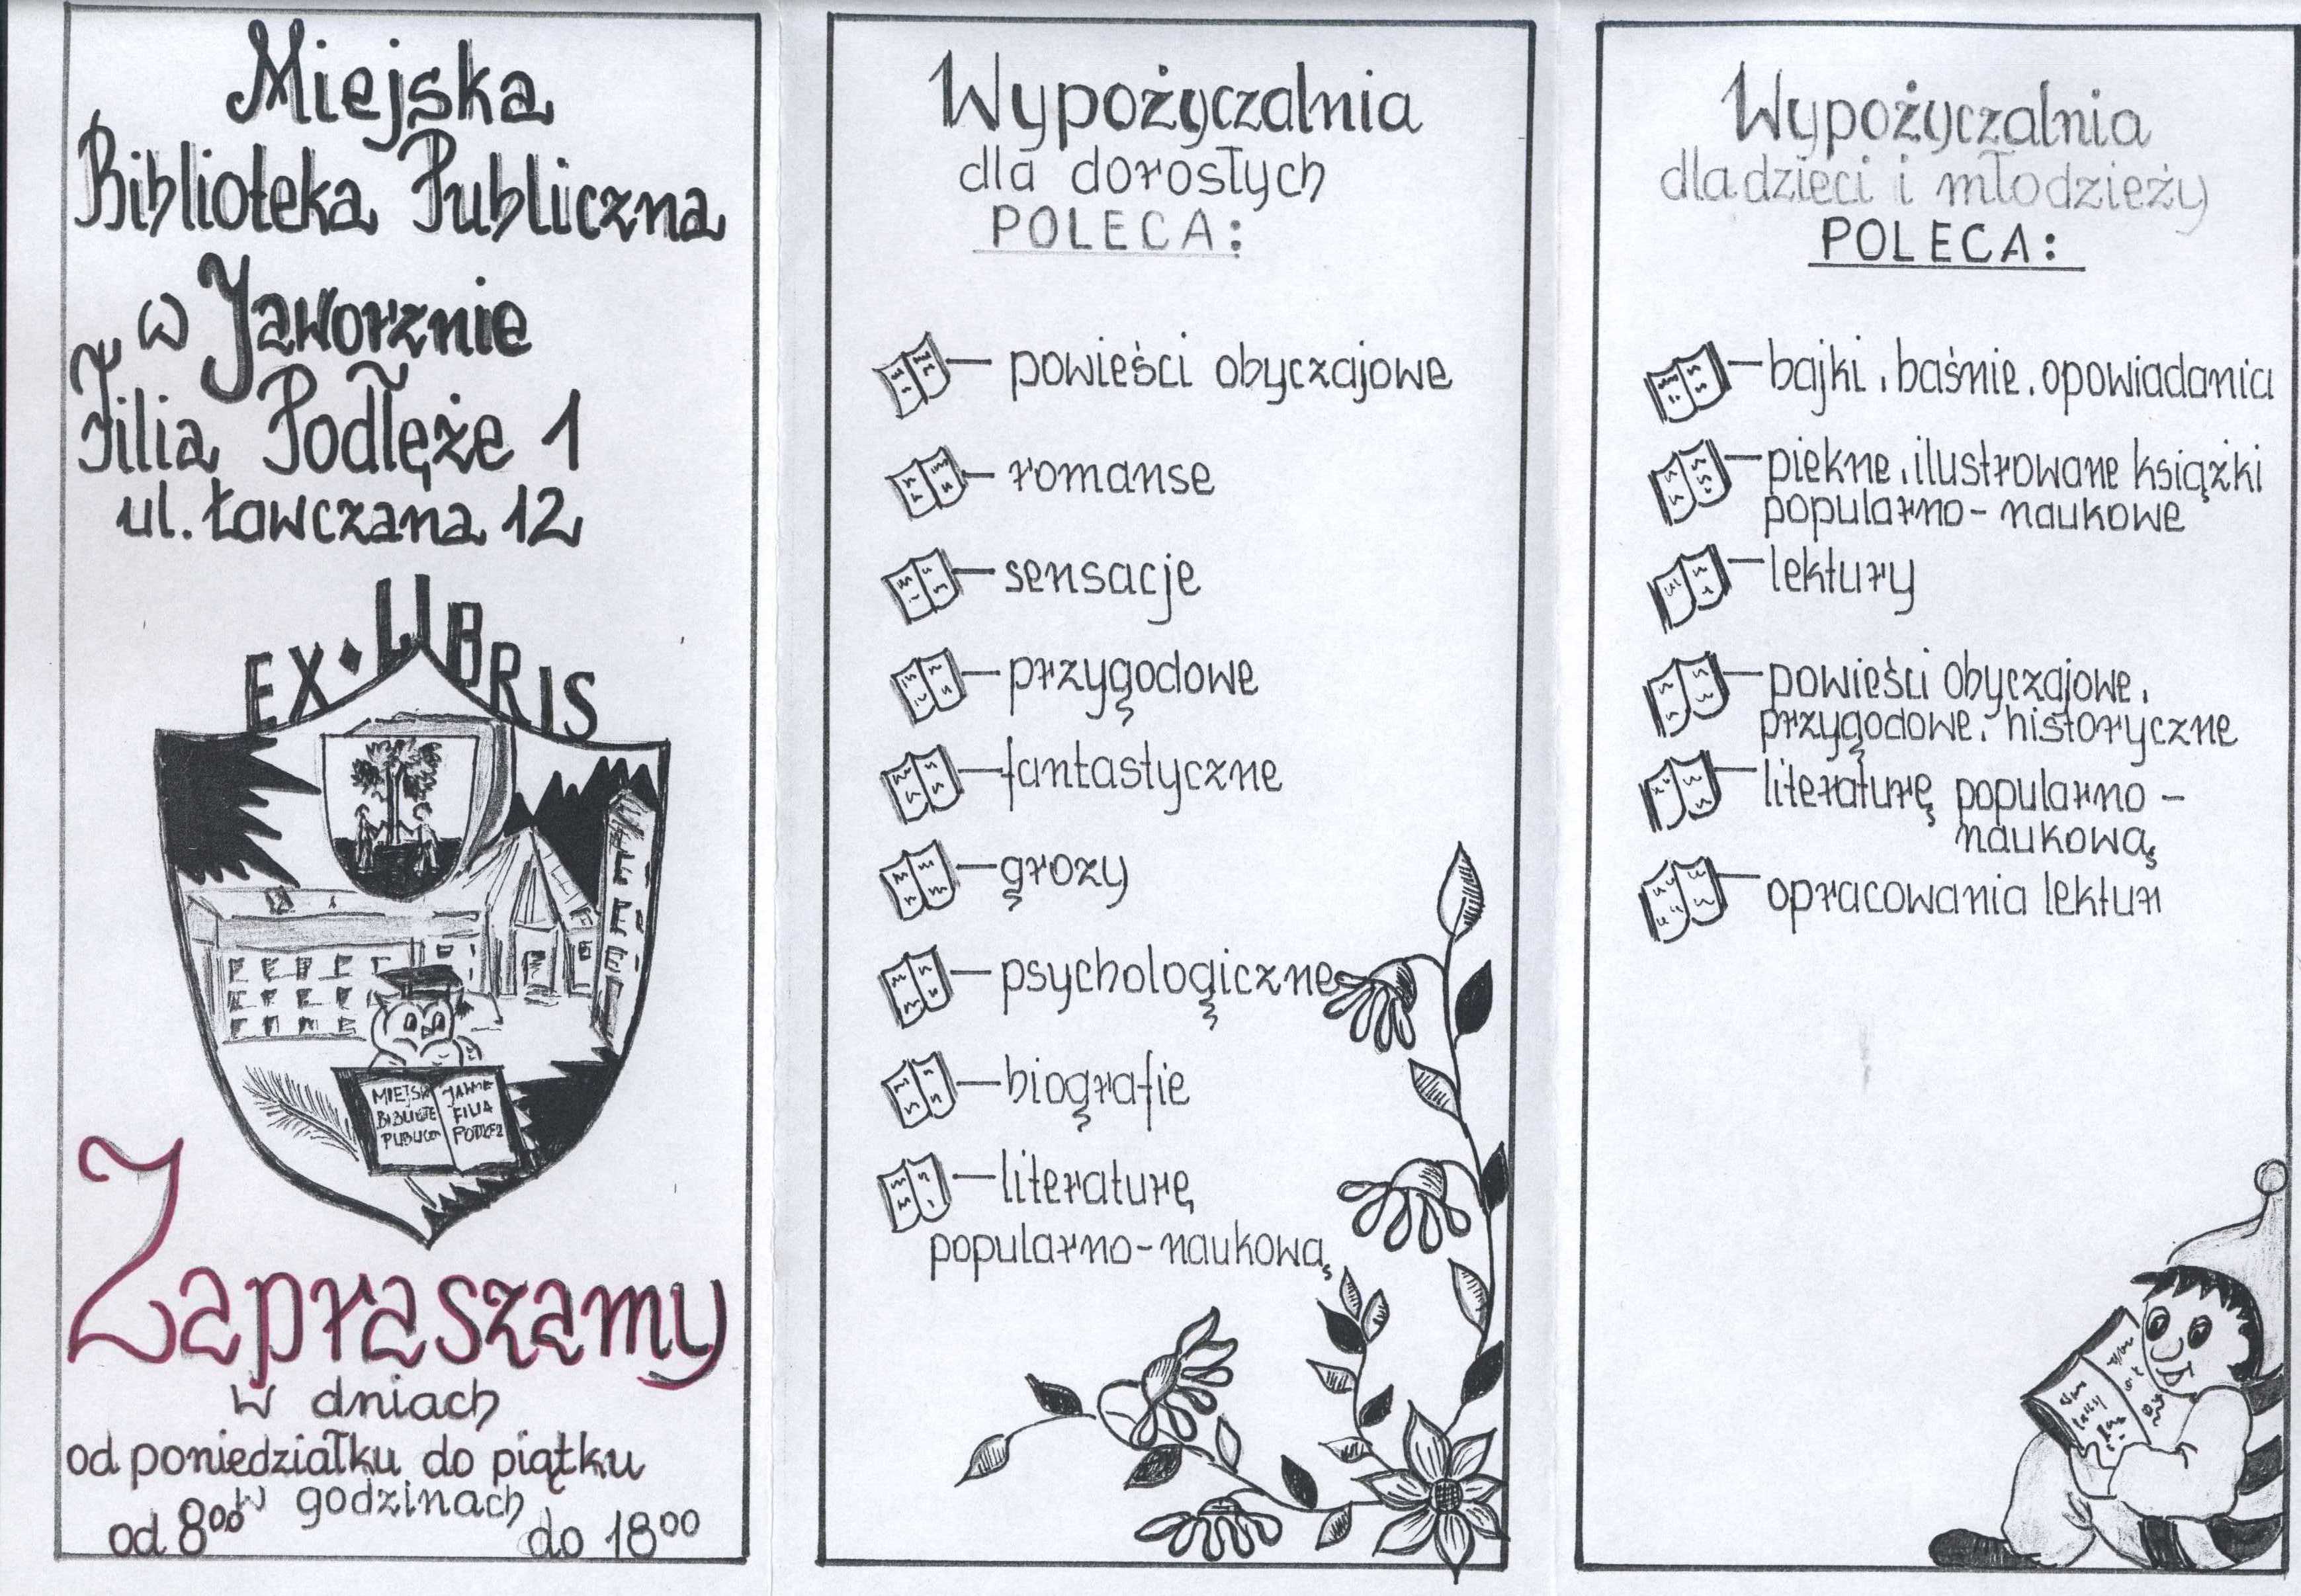 Miejska
Biblioteka Publiczna
w Jaworznie
Filia Podłęże 1
ul. Ławczana 12
EX·LIBRIS
MIEJSK
BIBLIOTE
PUBLICZN
JAWNE
FILIA
PODŁĘŻ
Zapraszamy
w dniach
od poniedziałku do piątku
w godzinach
od 8⁰⁰ do 18⁰⁰
Wypożyczalnia
dla dorosłych
POLECA:
– powieści obyczajowe
– romanse
– sensacje
– przygodowe
– fantastyczne
– grozy
– psychologiczne
– biografie
– literaturę
popularno-naukową
Wypożyczalnia
dla dzieci i młodzieży
POLECA:
– bajki, baśnie, opowiadania
– piękne, ilustrowane książki
popularno-naukowe
– lektury
– powieści obyczajowe,
przygodowe, historyczne
– literaturę popularno-
naukową
– opracowania lektur